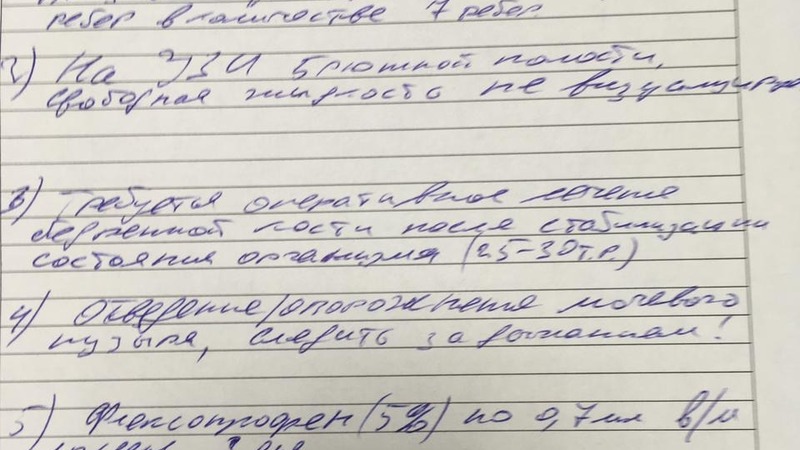 ребер в количестве 7 ребер.
2) На УЗИ брюшной полости,
свободная жидкость не визуализируе
3) Требуется оперативное лечение
бедренной кости после стабилизации
состояния организма (25-30 т.р.)
4) Отведение/опорожнения мочевого
пузыря, следить за дыханием!
5) Флексопрофен (5%) по 0,7 мл в/м